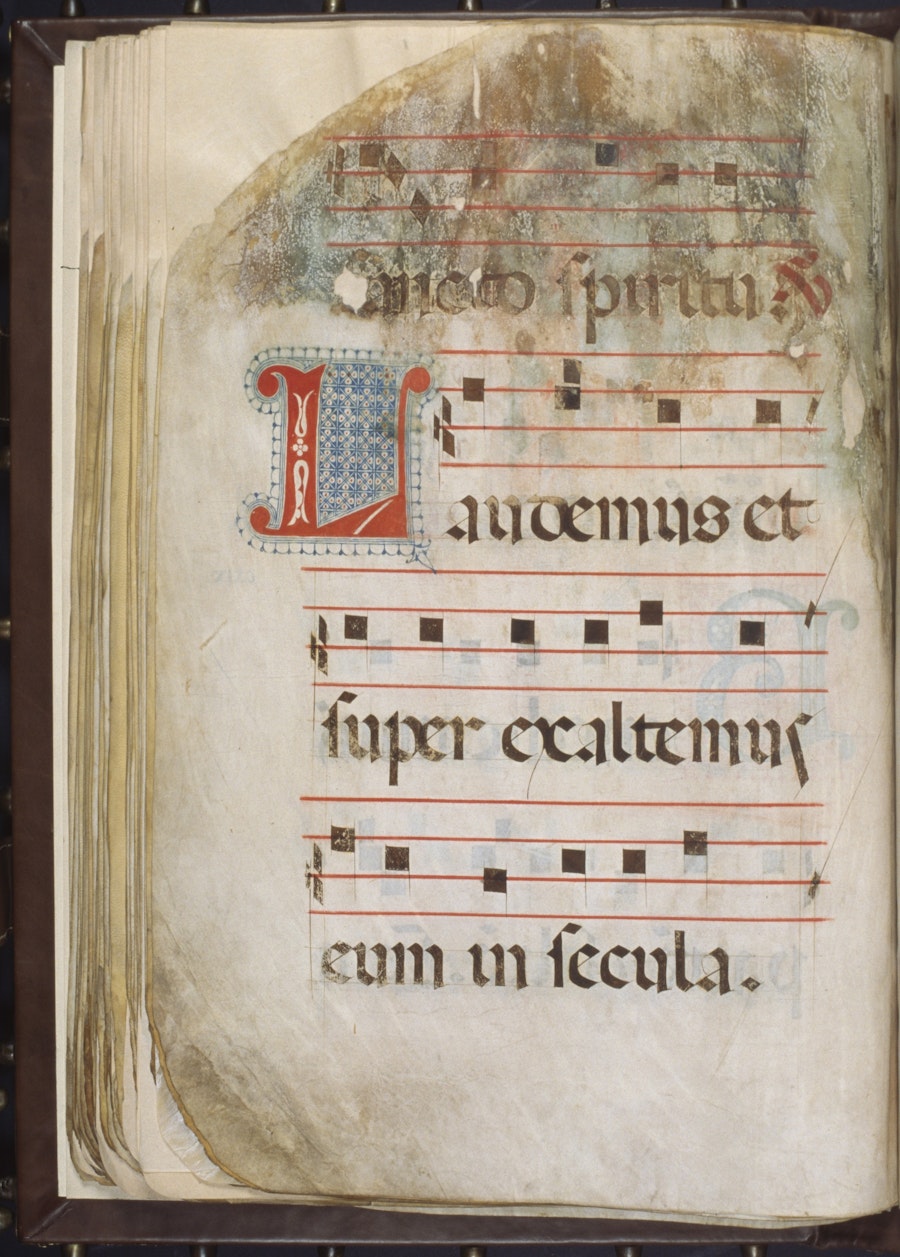 Sancto spiritu ℟
Laudemus et
super exaltemus
eum in secula.